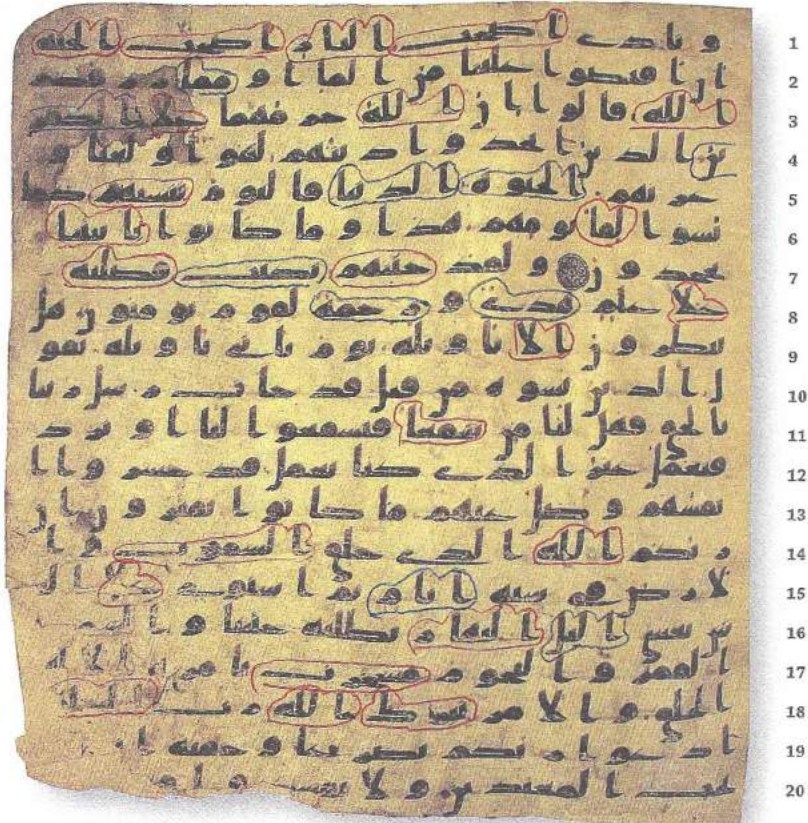 و نادى اصحب النار اصحب الجنه 1
ان افيضوا علينا من الما او مما رزقكم 2
الله قالوا ان الله حرمهما علا الكفر 3
ين الذين اتخذوا دينهم لهوا و لعبا و 4
غرتهم الحيوه الدنيا فاليوم ننسيهم كما 5
نسوا لقا يومهم هذا و ما كانوا بايتنا 6
يجحدون و لقد جئنهم بكتب فصلنه 7
علا علم هدى و رحمه لقوم يومنون هل 8
ينظرون الا تاويله يوم ياتي تاويله يقو 9
ل الذين نسوه من قبل قد جات رسل ربنا 10
بالحق فهل لنا من شفعا فيشفعوا لنا او نرد 11
فنعمل غير الذي كنا نعمل قد خسروا ا 12
نفسهم و ضل عنهم ما كانوا يفترون ان ر 13
بكم الله الذي خلق السموت و ا 14
لارض في سته ايام ثم استوى علا ال 15
عرش يغشي اليل النهار يطلبه حثيثا و الشمس و 16
القمر و النجوم مسخرت بامره الا له 17
الخلق و الامر تبرك الله رب العلمين 18
ادعوا ربكم تضرعا و خفيه ا 19
يحب المعتدين و لا تفسدوا 20